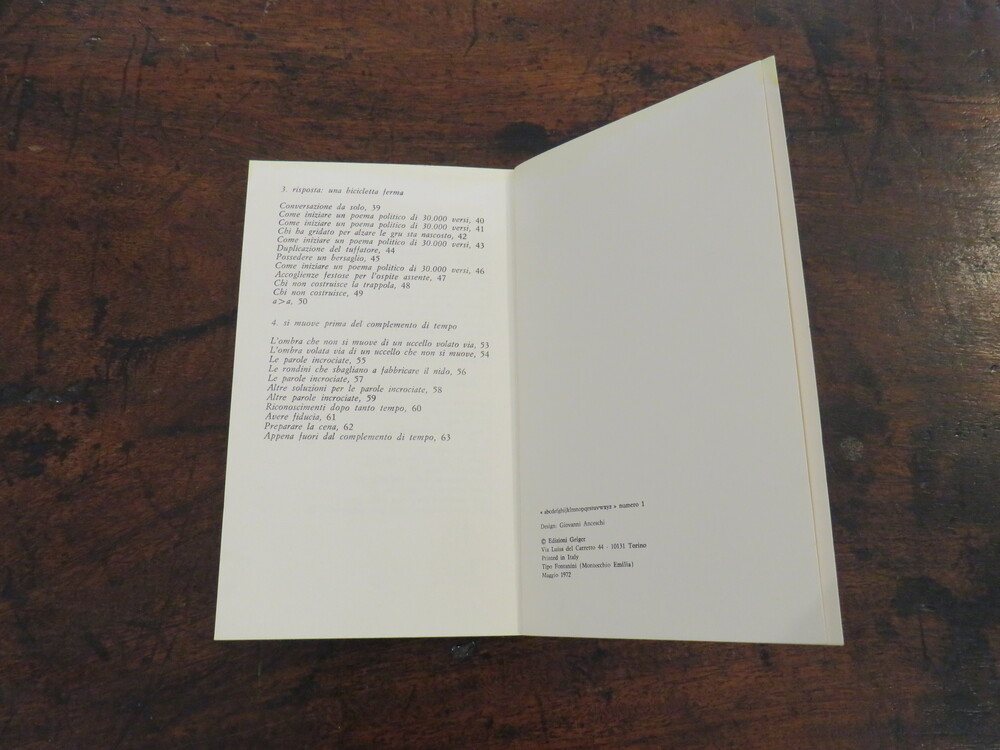 3. risposta: una bicicletta ferma
Conversazione da solo, 39
Come iniziare un poema politico di 30.000 versi, 40
Come iniziare un poema politico di 30.000 versi, 41
Chi ha gridato per alzare le gru sta nascosto, 42
Come iniziare un poema politico di 30.000 versi, 43
Duplicazione del tuffatore, 44
Possedere un bersaglio, 45
Come iniziare un poema politico di 30.000 versi, 46
Accoglienze festose per l'ospite assente, 47
Chi non costruisce la trappola, 48
Chi non costruisce, 49
a>a, 50
4. si muove prima del complemento di tempo
L'ombra che non si muove di un uccello volato via, 53
L'ombra volata via di un uccello che non si muove, 54
Le parole incrociate, 55
Le rondini che sbagliano a fabbricare il nido, 56
Le parole incrociate, 57
Altre soluzioni per le parole incrociate, 58
Altre parole incrociate, 59
Riconoscimenti dopo tanto tempo, 60
Avere fiducia, 61
Preparare la cena, 62
Appena fuori dal complemento di tempo, 63
numero 1
Design: Giovanni Anceschi
© Edizioni Geiger
Via Luisa del Carretto 44 - 10131 Torino
Printed in Italy
Tipo Fontanini (Montecchio Emilia)
Maggio 1972